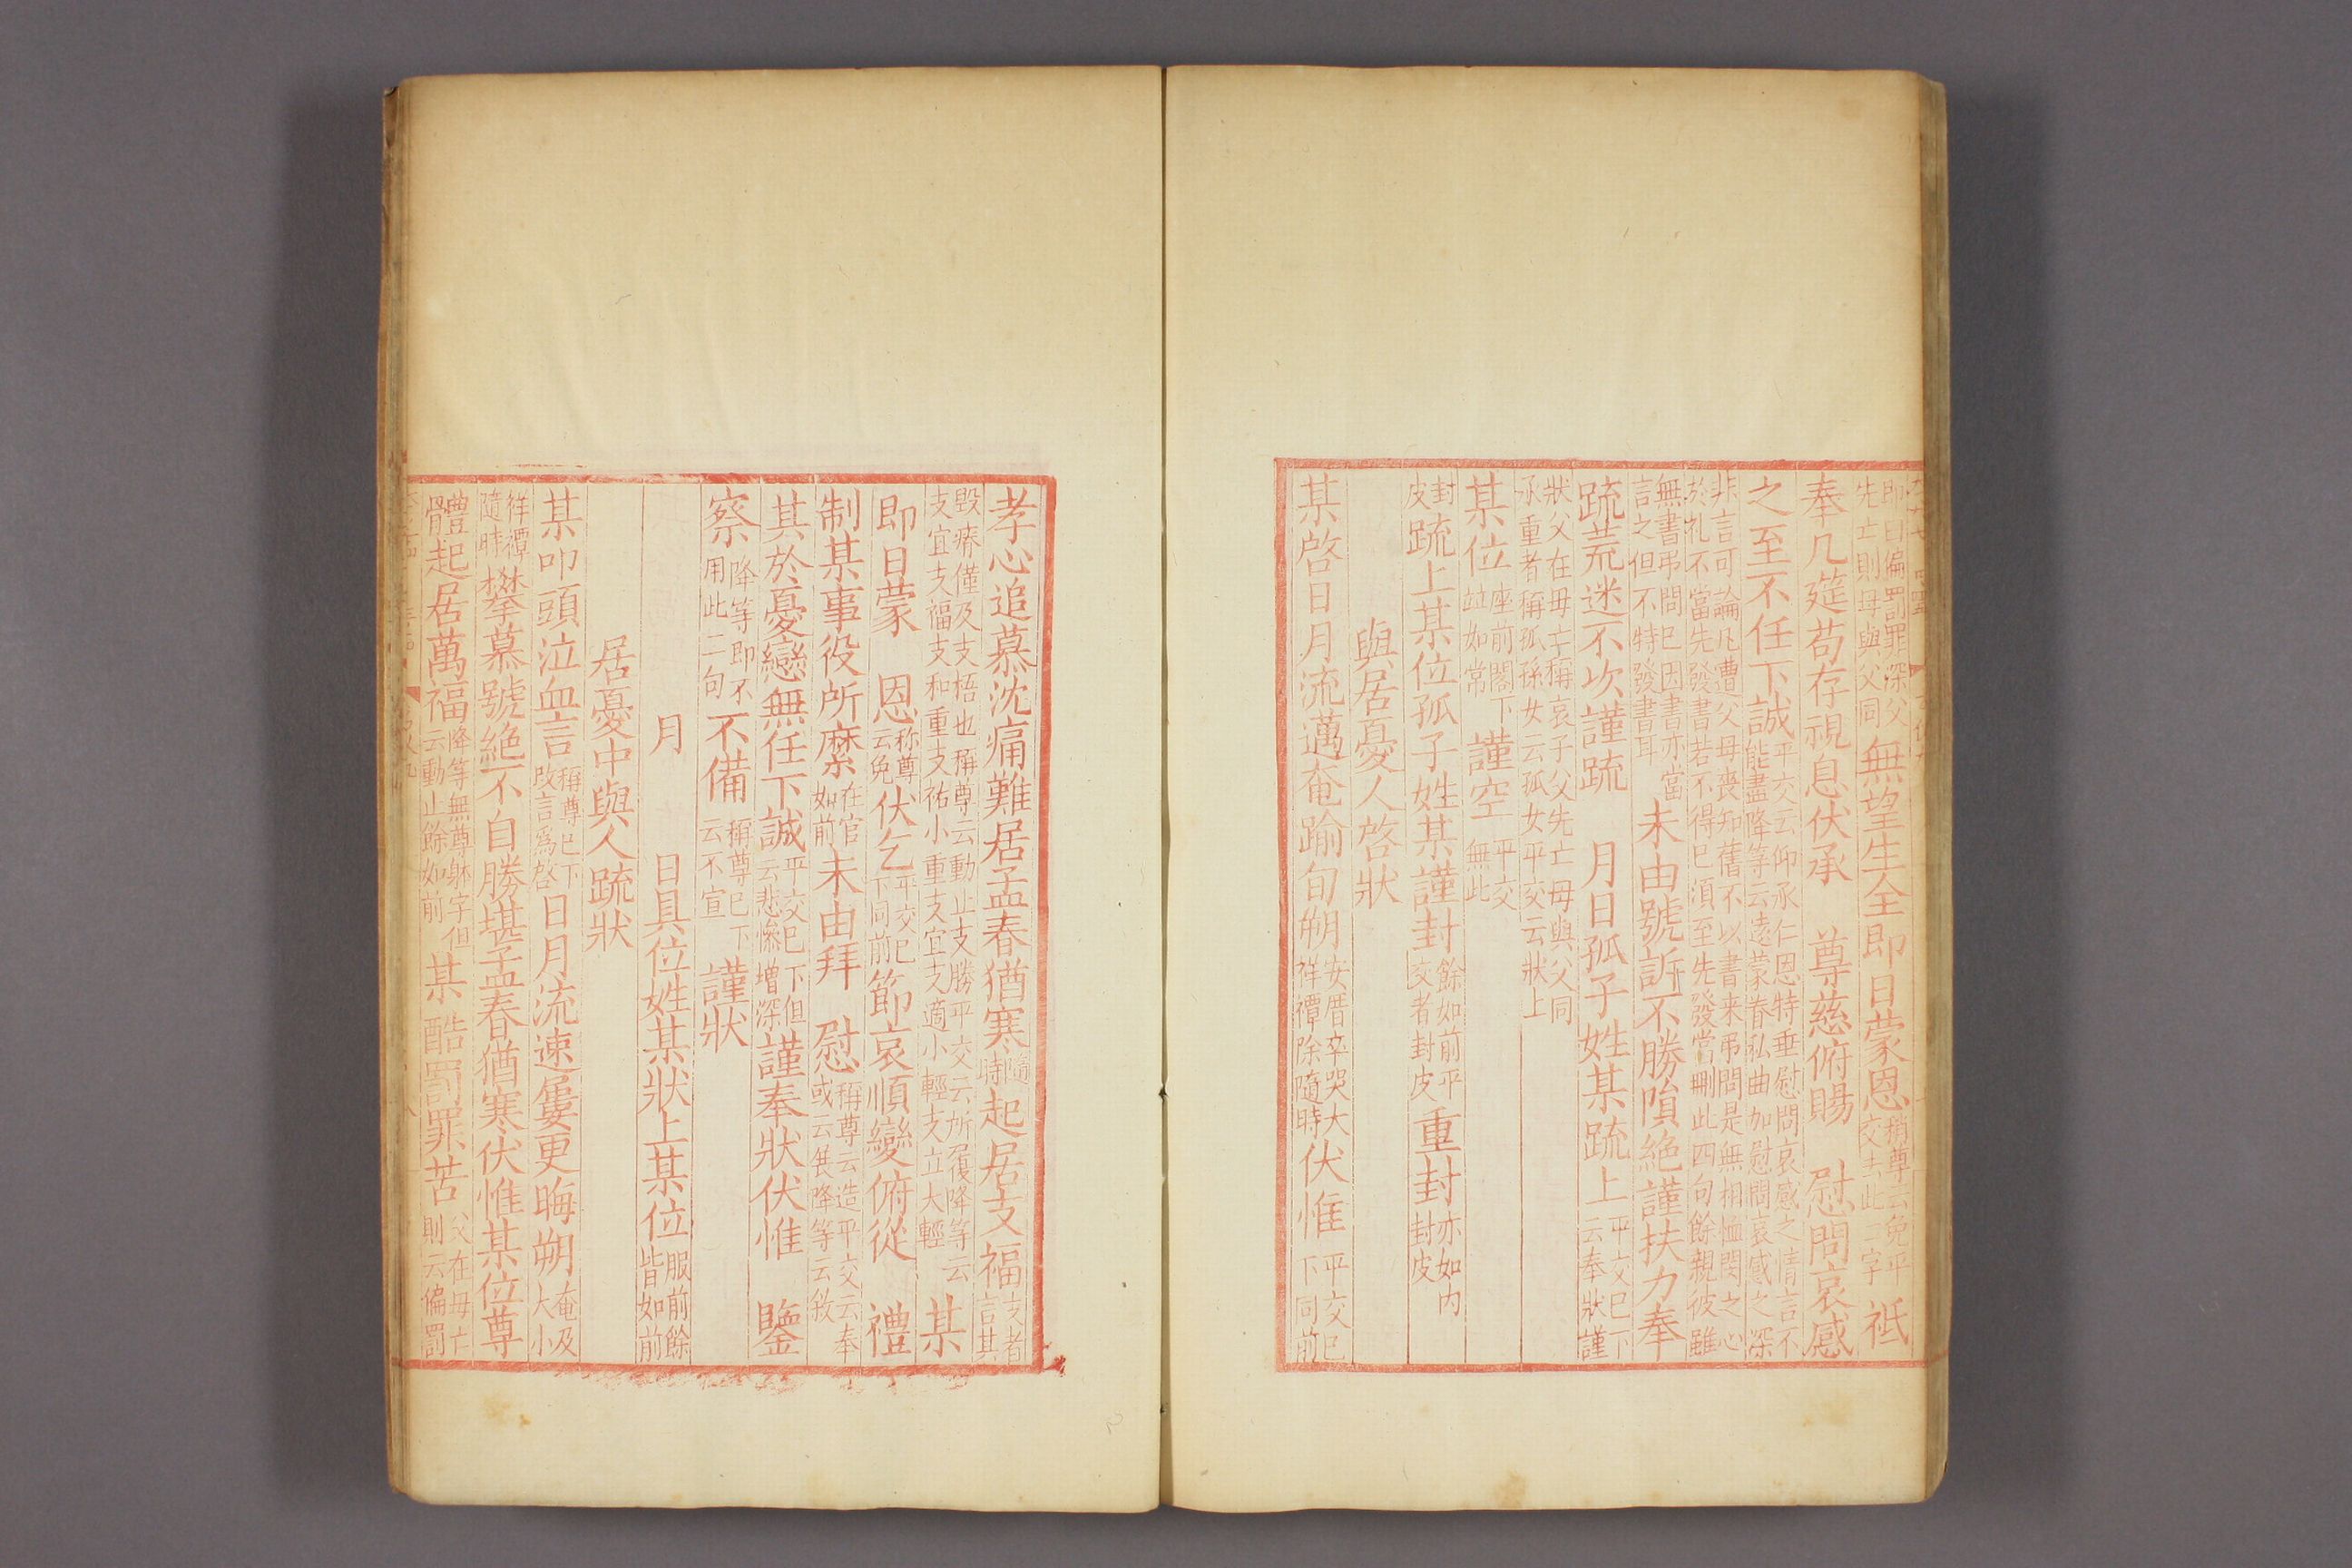 即日偏罰罪深父先亡則母與父同無望生全即日蒙恩稍尊云免平交去此二字祗
奉几筵苟存視息伏承　尊慈俯賜　慰問哀感
之至不任下誠平交云仰承仁恩特垂慰問哀感之情言不能盡降等云遠蒙眷私曲加慰問哀感之深
非言可論凡遭父母喪知舊不以書来弔問是無相恤閔之心於礼不當先發書若不得已湏至先發當刪此四句餘親彼雖
無書弔問已因書亦當言之但不特發書耳未由號訴不勝隕絶謹扶力奉
疏荒迷不次謹疏　月日孤子姓某疏上平交已下云奉狀謹
狀父在母亡稱哀子父先亡母與父同承重者稱孤孫女云孤女平交云狀上
某位座前閣下竝如常謹空平交無此
封皮疏上某位孤子姓某謹封餘如前平交者封皮重封亦如内封皮
與居憂人啓狀
某啓日月流邁奄踰旬朔安厝卒哭大祥禫除隨時伏惟平交已下同前
孝心追慕沈痛難居孟春猶寒隨時起居支福支者言其
毀瘠僅及支梧也稱尊云動止支勝平交云所履降等云支宜支福支和重支祐小重支宜支適小輕支立大輕某
即日蒙　恩称尊云免伏乞平交已下同前節哀順變俯從　禮
制某事役所縻在官如前未由拜　慰稱尊云造平交云奉或云展降等云敘
其於憂戀無任下誠平交已下但云悲慘增深謹奉狀伏惟　鑒
察降等即不用此二句不備稱尊已下云不宣謹狀
月　日具位姓某狀上某位服前餘皆如前
居憂中與人疏狀
某叩頭泣血言稱尊已下改言爲啓日月流速屢更晦朔奄及大小
祥禫隨時攀慕號絶不自勝堪孟春猶寒伏惟某位尊
體起居萬福降等無尊躰字但云動止餘如前某酷罰罪苦父在母亡則云偏罰